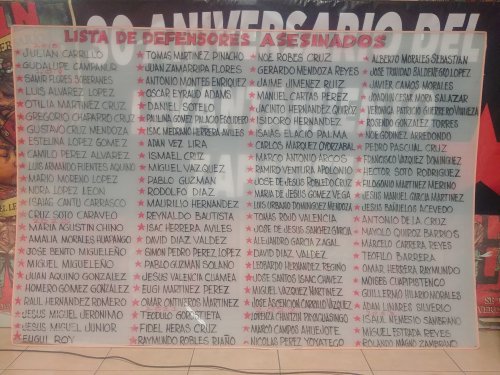 30 ANIVERSARIO DEL
LISTA DE DEFENSORES ASESINADOS
JULIAN CARRILLO
GUDALUPE CAMPANUR
SAMIR FLORES SOBERANES
LUIS ALVAREZ LOPEZ
OTILIA MARTINEZ CRUZ
GREGORIO CHAPARRO CRUZ
GUSTAVO CRUZ MENDOZA
ESTELINA LOPEZ GOMEZ
CAMILO PEREZ ALVAREZ
LUIS ARMANDO FUENTES AQUINO
MARIO MORENO LOPEZ
NORA LOPEZ LEON
ISAIAS CANTU CARRASCO
CRUZ SOTO CARAVEO
MARIA AGUSTIN CHINO
AMALIA MORALES HUAPANGO
JOSE BENITO MIGUELEÑO
MIGUEL MIGUELEÑO
JUAN AQUINO GONZALEZ
HOMERO GOMEZ GONZALEZ
RAUL HERNANDEZ ROMERO
JESUS MIGUEL JERONIMO
JESUS MIGUEL JUNIOR
EUGUI ROY
TOMAS MARTINEZ PINACHO
JUAN ZAMARRIPA FLORES
ANTONIO MONTES ENRIQUEZ
OSCAR EYRAUD ADAMS
DANIEL SOTELO
PAULINA GOMEZ PALACIO ESCUDERO
ISAC MEDRANO HERRERA AVILES
ADAN VEZ LIRA
ISMAEL CRUZ
MIGUEL VAZQUEZ
PABLO GUZMAN
RODOLFO DIAZ
MAURILIO HERNANDEZ
REYNALDO BAUTISTA
ISAC HERRERA AVILES
DAVID DIAZ VALDEZ
SIMON PEDRO PEREZ LOPEZ
PABLO GUZMAN SOLANO
JESUS VALENCIA CUAMEA
EUGI MARTINEZ PEREZ
OMAR ONTIVEROS MARTINEZ
TEODULO GOROSTIETA
FIDEL HERAS CRUZ
RAYMUNDO ROBLES RIAÑO
NOE ROBES CRUZ
GERARDO MENDOZA REYES
JAIME JIMENEZ RUIZ
MANUEL CARTAS PEREZ
JACINTO HERNANDEZ QUIROZ
ISIDORO HERNANDEZ
ISAIAS ELACIO PALMA
CARLOS MARQUEZ OYORZABAL
MARCO ANTONIO ARCOS
RAMIRO VENTURA APOLONIO
JOSE DE JESUS ROBLEDO CRUZ
MARIA DE JESUS GOMEZ VEGA
LUIS URBANO DOMINGUEZ MENDOZA
TOMAS ROJO VALENCIA
JOSE DE JESUS SANCHEZ GARCIA
ALEJANDRO GARCIA ZAGAL
DAVID DIAZ VALDEZ
LEOBARDO HERNANDEZ REGINO
JOSE SANTOS ISAAC CHAVEZ
MIGUEL VAZQUEZ MARTINEZ
JOSE ASCENCION CARRILLO VAZQUEZ
LORENZA CHAVITZIN TPAYACUASINGO
MARCO CAMPOS AHUEJOTE
NICOLAS PEREZ YOYATEGO
ALBERTO MORALES SEBASTIAN
JOSE TRINIDAD BALDENEGRO LOPEZ
JAVIER CAMOS MORALES
JOAQUIN CESAR MORA SALAZAR
VERONICA PATRICIA GUERRERO VINUEZA
ROSENDO GONZALEZ TORRES
NOE GODINEZ ARREDONDO
PEDRO PASCUAL CRUZ
FRANCISCO VAZQUEZ DOMINGUEZ
HECTOR SOTO RODRIGUEZ
FILOGONIO MARTINEZ MERINO
JESUS MANUEL GARCIA MARTINEZ
JESUS BAÑUELOS ACEVEDO
ANTONIO DE LA CRUZ
MAYOLO QUIROZ BARRIOS
MARCELO CARRERA REYES
TEOFILO BARRERA
OMAR HERRERA RAYMUNDO
MOISES CUAPIPISTENCO
GUILLERMO HILARIO MORALES
ADAN LINARES SILVERIO
ISAUL NEMESIO ZAMBRANO
MIGUEL ESTRADA REYES
ROLANDO MAGNO ZAMBRANO